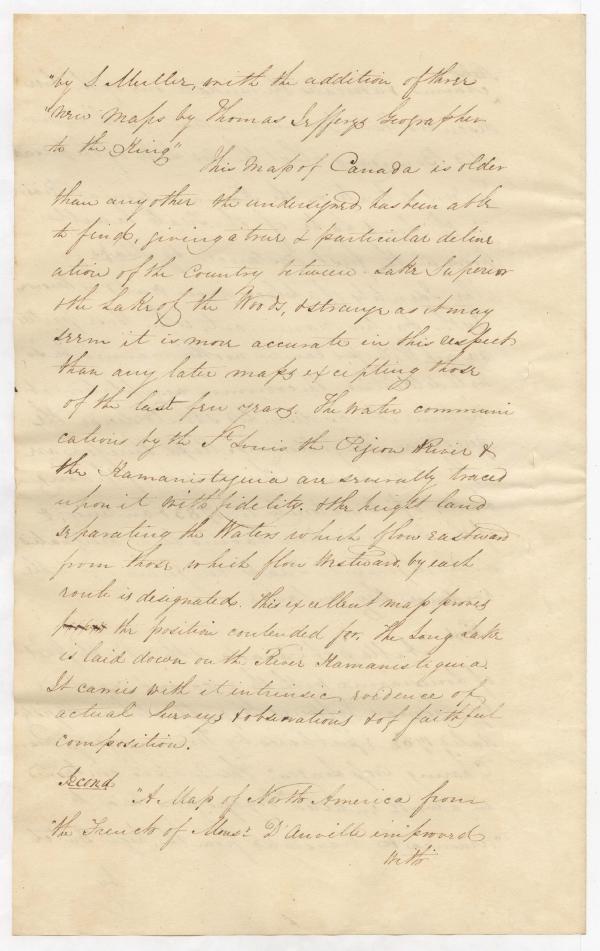 "by S. Muller, with the addition of three
"New Maps by Thomas Jefferys Geographer
to the King"  This Map of Canada is older
than any other the undersigned has been able
to find, giving a true & particular deline
ation of the Country between Lake Superior
& the Lake of the Woods, & strange as it may
seem it is more accurate in this respect
than any later maps excepting those
of the last few years. The water communi
cations by the St Louis the Pigeon River &
the Kamanistiquia are severally traced
upon it with fidelity. & the height land
separating the Waters which flow eastward
from those which flow Westward, by each
route is designated. This excellent map proves
the position contended for. The Long Lake
is laid down on the River Kamanistiquia.
It carries with it intrinsic evidence of
actual Surveys & observations & of faithful
composition.
Second
"A Map of North America from
"the French of Monsr D'Anville improved
with